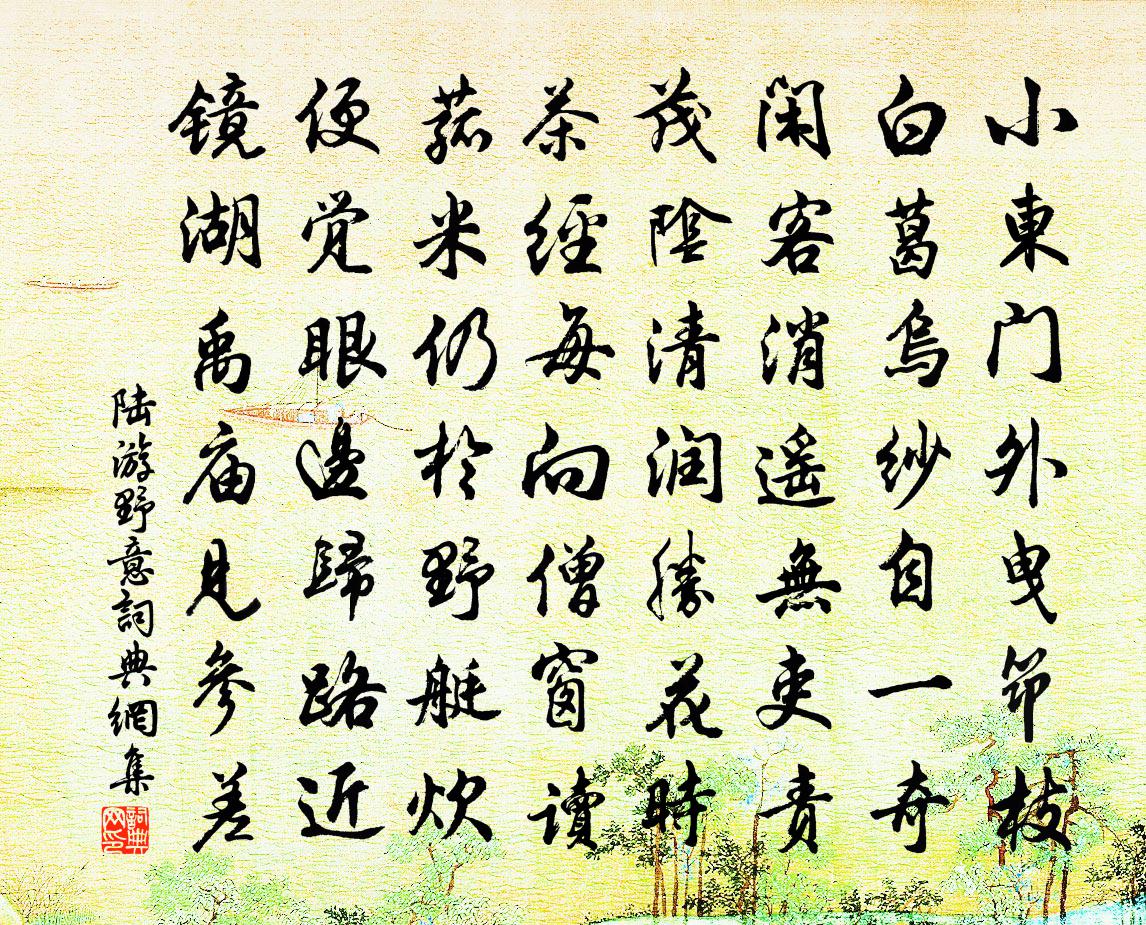 小東门外曳筇枝
白葛烏纱自一奇
闲客消遥無吏责
茂陰清润勝花時
茶經每向僧窗讀
菰米仍於野艇炊
便觉眼邊歸路近
镜湖禹庙见参差
陆游野意詞典網集